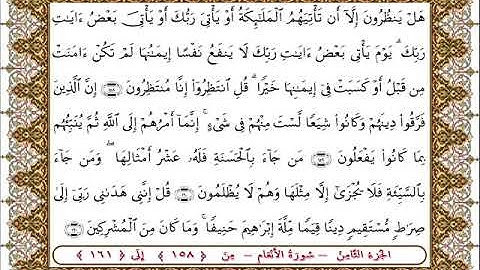 هَلْ يَنظُرُونَ إِلَّا أَن تَأْتِيَهُمُ الْمَلَٰٓئِكَةُ أَوْ يَأْتِىَ رَبُّكَ أَوْ يَأْتِىَ بَعْضُ ءَايَٰتِ
رَبِّكَ ۗ يَوْمَ يَأْتِى بَعْضُ ءَايَٰتِ رَبِّكَ لَا يَنفَعُ نَفْسًا إِيمَٰنُهَا لَمْ تَكُنْ ءَامَنَتْ
مِن قَبْلُ أَوْ كَسَبَتْ فِىٓ إِيمَٰنِهَا خَيْرًا ۗ قُلِ انتَظِرُوٓا۟ إِنَّا مُنتَظِرُونَ ﴿١٥٨﴾ إِنَّ الَّذِينَ
فَرَّقُوا۟ دِينَهُمْ وَكَانُوا۟ شِيَعًا لَّسْتَ مِنْهُمْ فِى شَىْءٍ ۚ إِنَّمَآ أَمْرُهُمْ إِلَى اللَّهِ ثُمَّ يُنَبِّئُهُم
بِمَا كَانُوا۟ يَفْعَلُونَ ﴿١٥٩﴾ مَن جَآءَ بِالْحَسَنَةِ فَلَهُۥ عَشْرُ أَمْثَالِهَا ۖ وَمَن جَآءَ
بِالسَّيِّئَةِ فَلَا يُجْزَىٰٓ إِلَّا مِثْلَهَا وَهُمْ لَا يُظْلَمُونَ ﴿١٦٠﴾ قُلْ إِنَّنِى هَدَىٰنِى رَبِّىٓ إِلَىٰ
صِرَٰطٍ مُّسْتَقِيمٍ دِينًا قِيَمًا مِّلَّةَ إِبْرَٰهِيمَ حَنِيفًا ۚ وَمَا كَانَ مِنَ الْمُشْرِكِينَ ﴿١٦١﴾
الجزء الثامن - سورة الأنعام - من ﴿ ١٥٨ ﴾ إلى ﴿ ١٦١ ﴾